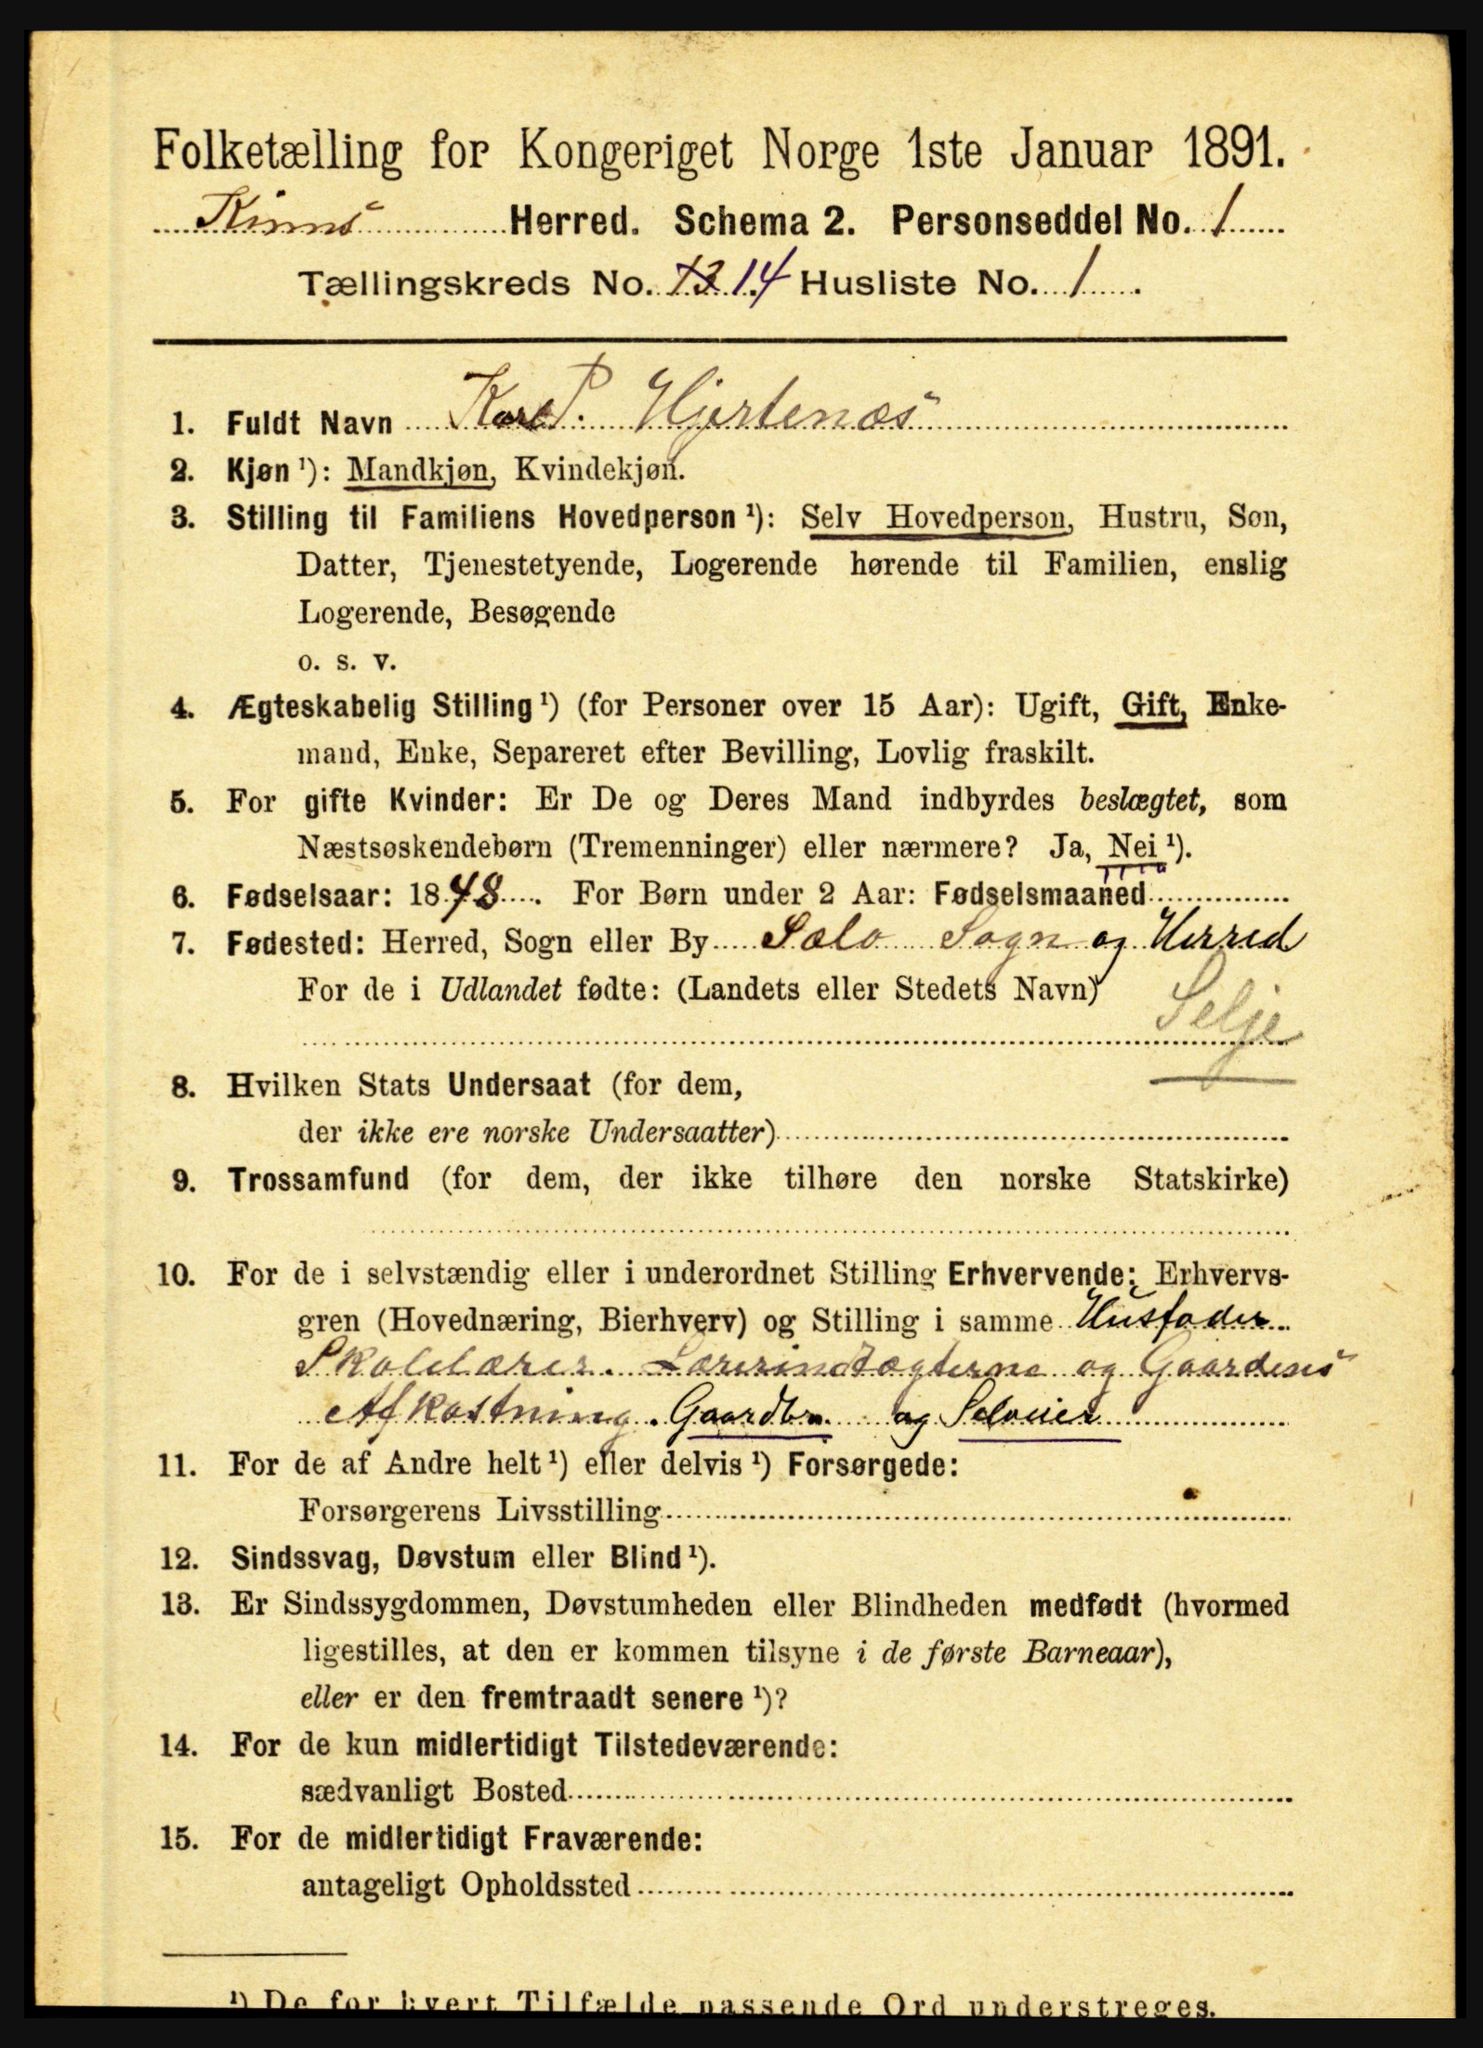 Folketælling for Kongeriget Norge 1ste Januar 1891.
Kinns Herred. Schema 2. Personseddel No. 1
Tællingskreds No. 13 14 Husliste No. 1
1. Fuldt Navn Karl P. Hjertenæs
2. Kjøn ¹): Mandkjøn, Kvindekjøn.
3. Stilling til Familiens Hovedperson ¹): Selv Hovedperson, Hustru, Søn,
Datter, Tjenestetyende, Logerende hørende til Familien, enslig
Logerende, Besøgende
o. s. v.
4. Ægteskabelig Stilling ¹) (for Personer over 15 Aar): Ugift, Gift, Enke-
mand, Enke, Separeret efter Bevilling, Lovlig fraskilt.
5. For gifte Kvinder: Er De og Deres Mand indbyrdes beslægtet, som
Næstsøskendebørn (Tremenninger) eller nærmere? Ja, Nei ¹).
6. Fødselsaar: 1848. For Børn under 2 Aar: Fødselsmaaned
7. Fødested: Herred, Sogn eller By Sælø Sogn og Herred
For de i Udlandet fødte: (Landets eller Stedets Navn)
Selje
8. Hvilken Stats Undersaat (for dem,
der ikke ere norske Undersaatter)
9. Trossamfund (for dem, der ikke tilhøre den norske Statskirke)
10. For de i selvstændig eller i underordnet Stilling Erhvervende: Erhvervs-
gren (Hovednæring, Bierhverv) og Stilling i samme Husfader
Skolelærer. Lærerindtægterne og Gaardens
Afkastning. Gaardbr. og Selveier
11. For de af Andre helt ¹) eller delvis ¹) Forsørgede:
Forsørgerens Livsstilling
12. Sindssvag, Døvstum eller Blind ¹).
13. Er Sindssygdommen, Døvstumheden eller Blindheden medfødt (hvormed
ligestilles, at den er kommen tilsyne i de første Barneaar),
eller er den fremtraadt senere ¹)?
14. For de kun midlertidigt Tilstedeværende:
sædvanligt Bosted
15. For de midlertidigt Fraværende:
antageligt Opholdssted
¹) De for hvert Tilfælde passende Ord understreges.